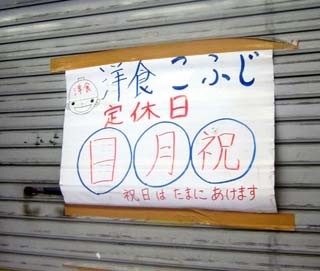 洋食
洋食 こふじ
定休日
日 月 祝
祝日は たまに あけます